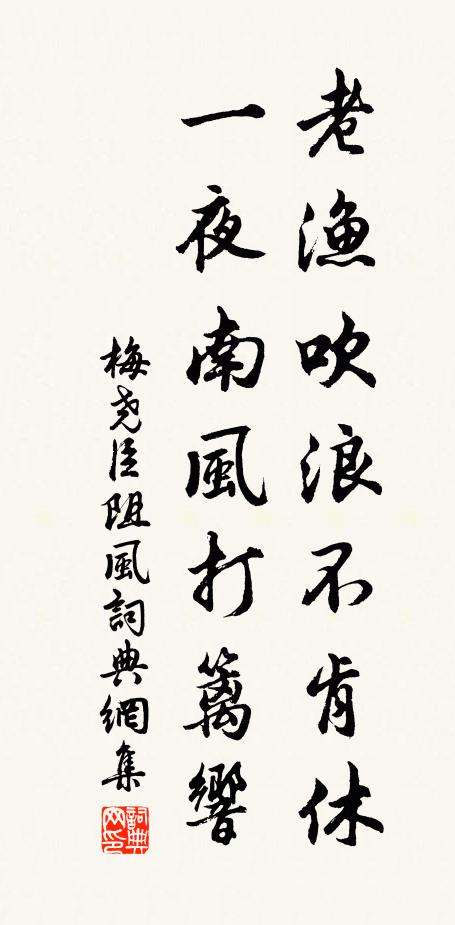 老漁吹浪不肯休
一夜南風打篱響
梅尧臣阻風詞典網集
詞典网印